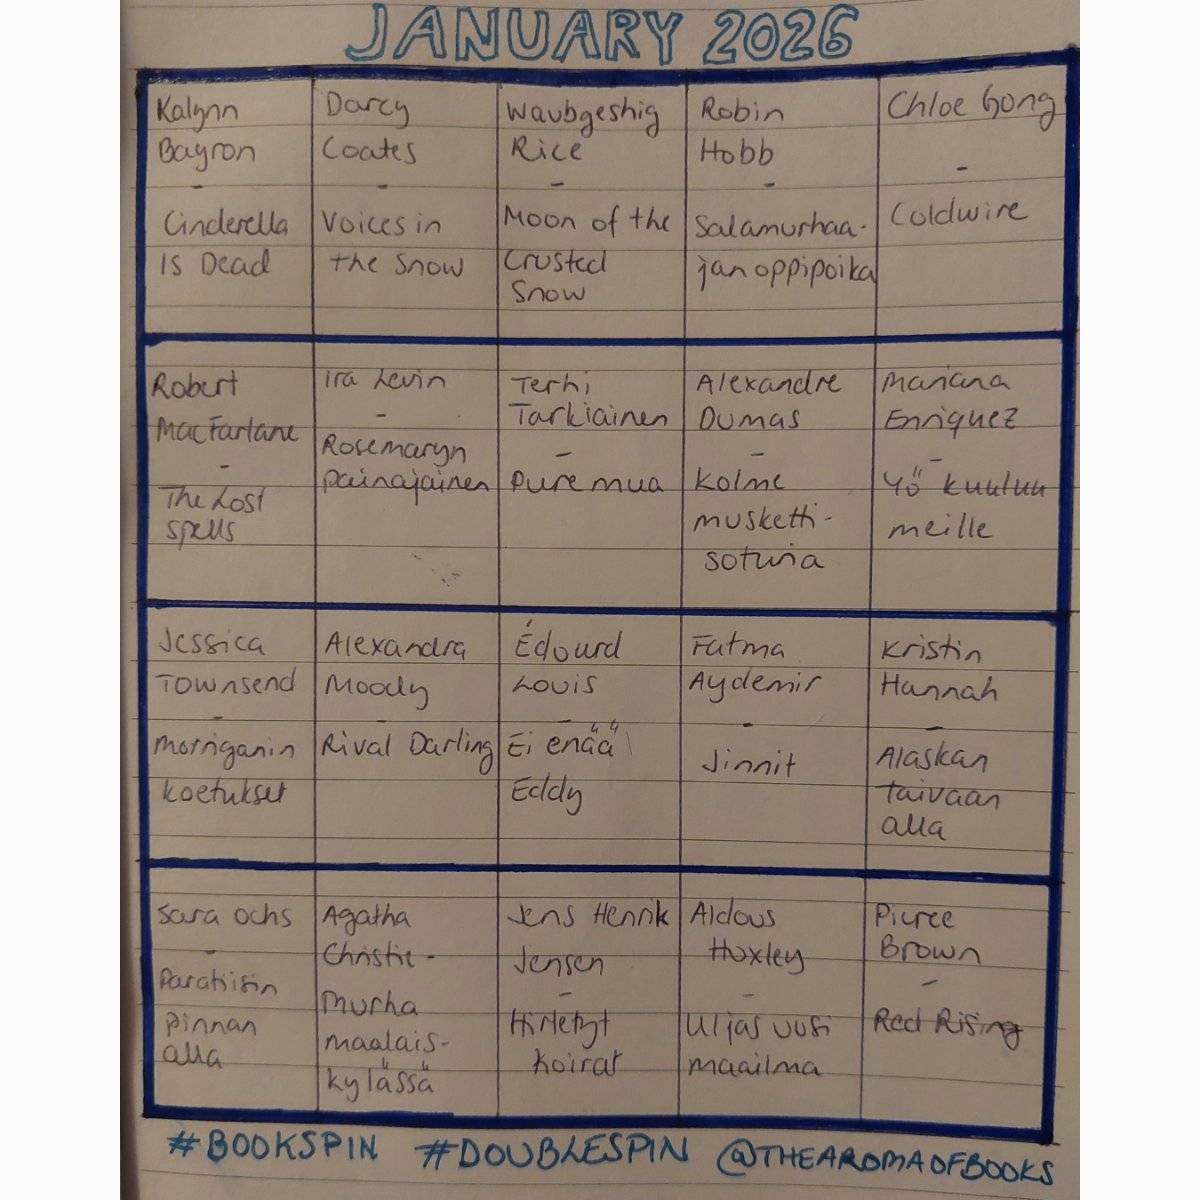 JANUARY 2026
Kalynn
Bayron
-
Cinderella
Is Dead
Darcy
Coates
-
Voices in
the Snow
Waubgeshig
Rice
-
Moon of the
Crusted
Snow
Robin
Hobb
-
Salamurhaa-
jan oppipoika
Chloe Gong
-
Coldwire
Robert
MacFarlane
-
The Lost
spells
Ira Levin
-
Rosemaryn
painajainen
Terhi
Tarkiainen
-
Pure mua
Alexandre
Dumas
-
Kolme
musketti-
soturia
Mariana
Enriquez
-
Yö kuuluu
meille
Jessica
Townsend
-
Morriganin
koetukset
Alexandra
Moody
-
Rival Darling
Édourd
Louis
-
Ei enää
Eddy
Fatma
Aydemir
-
Jinnit
Kristin
Hannah
-
Alaskan
taivaan
alla
Sara Ochs
-
Paratiisin
pinnan
alla
Agatha
Christie -
Murha
maalais-
kylässä
Jens Henrik
Jensen
-
Hirtetyt
koirat
Aldous
Huxley
-
Uljas uusi
maailma
Pierce
Brown
-
Red Rising
#BOOKSPIN #DOUBLESPIN @THEAROMAOFBOOKS